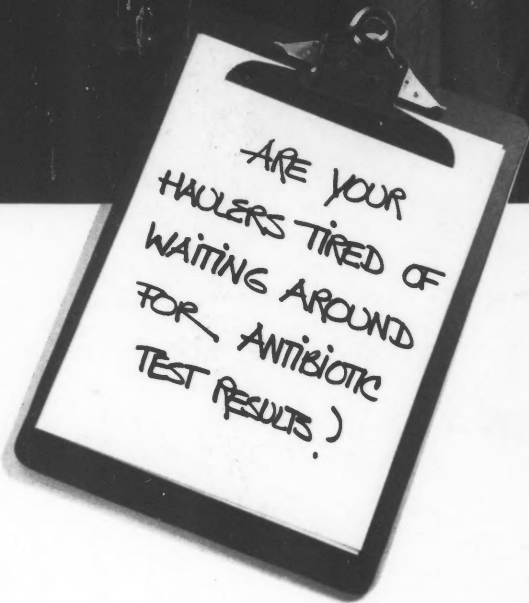 ARE YOUR
HAULERS TIRED OF
WAITING AROUND
FOR ANTIBIOTIC
TEST RESULTS?